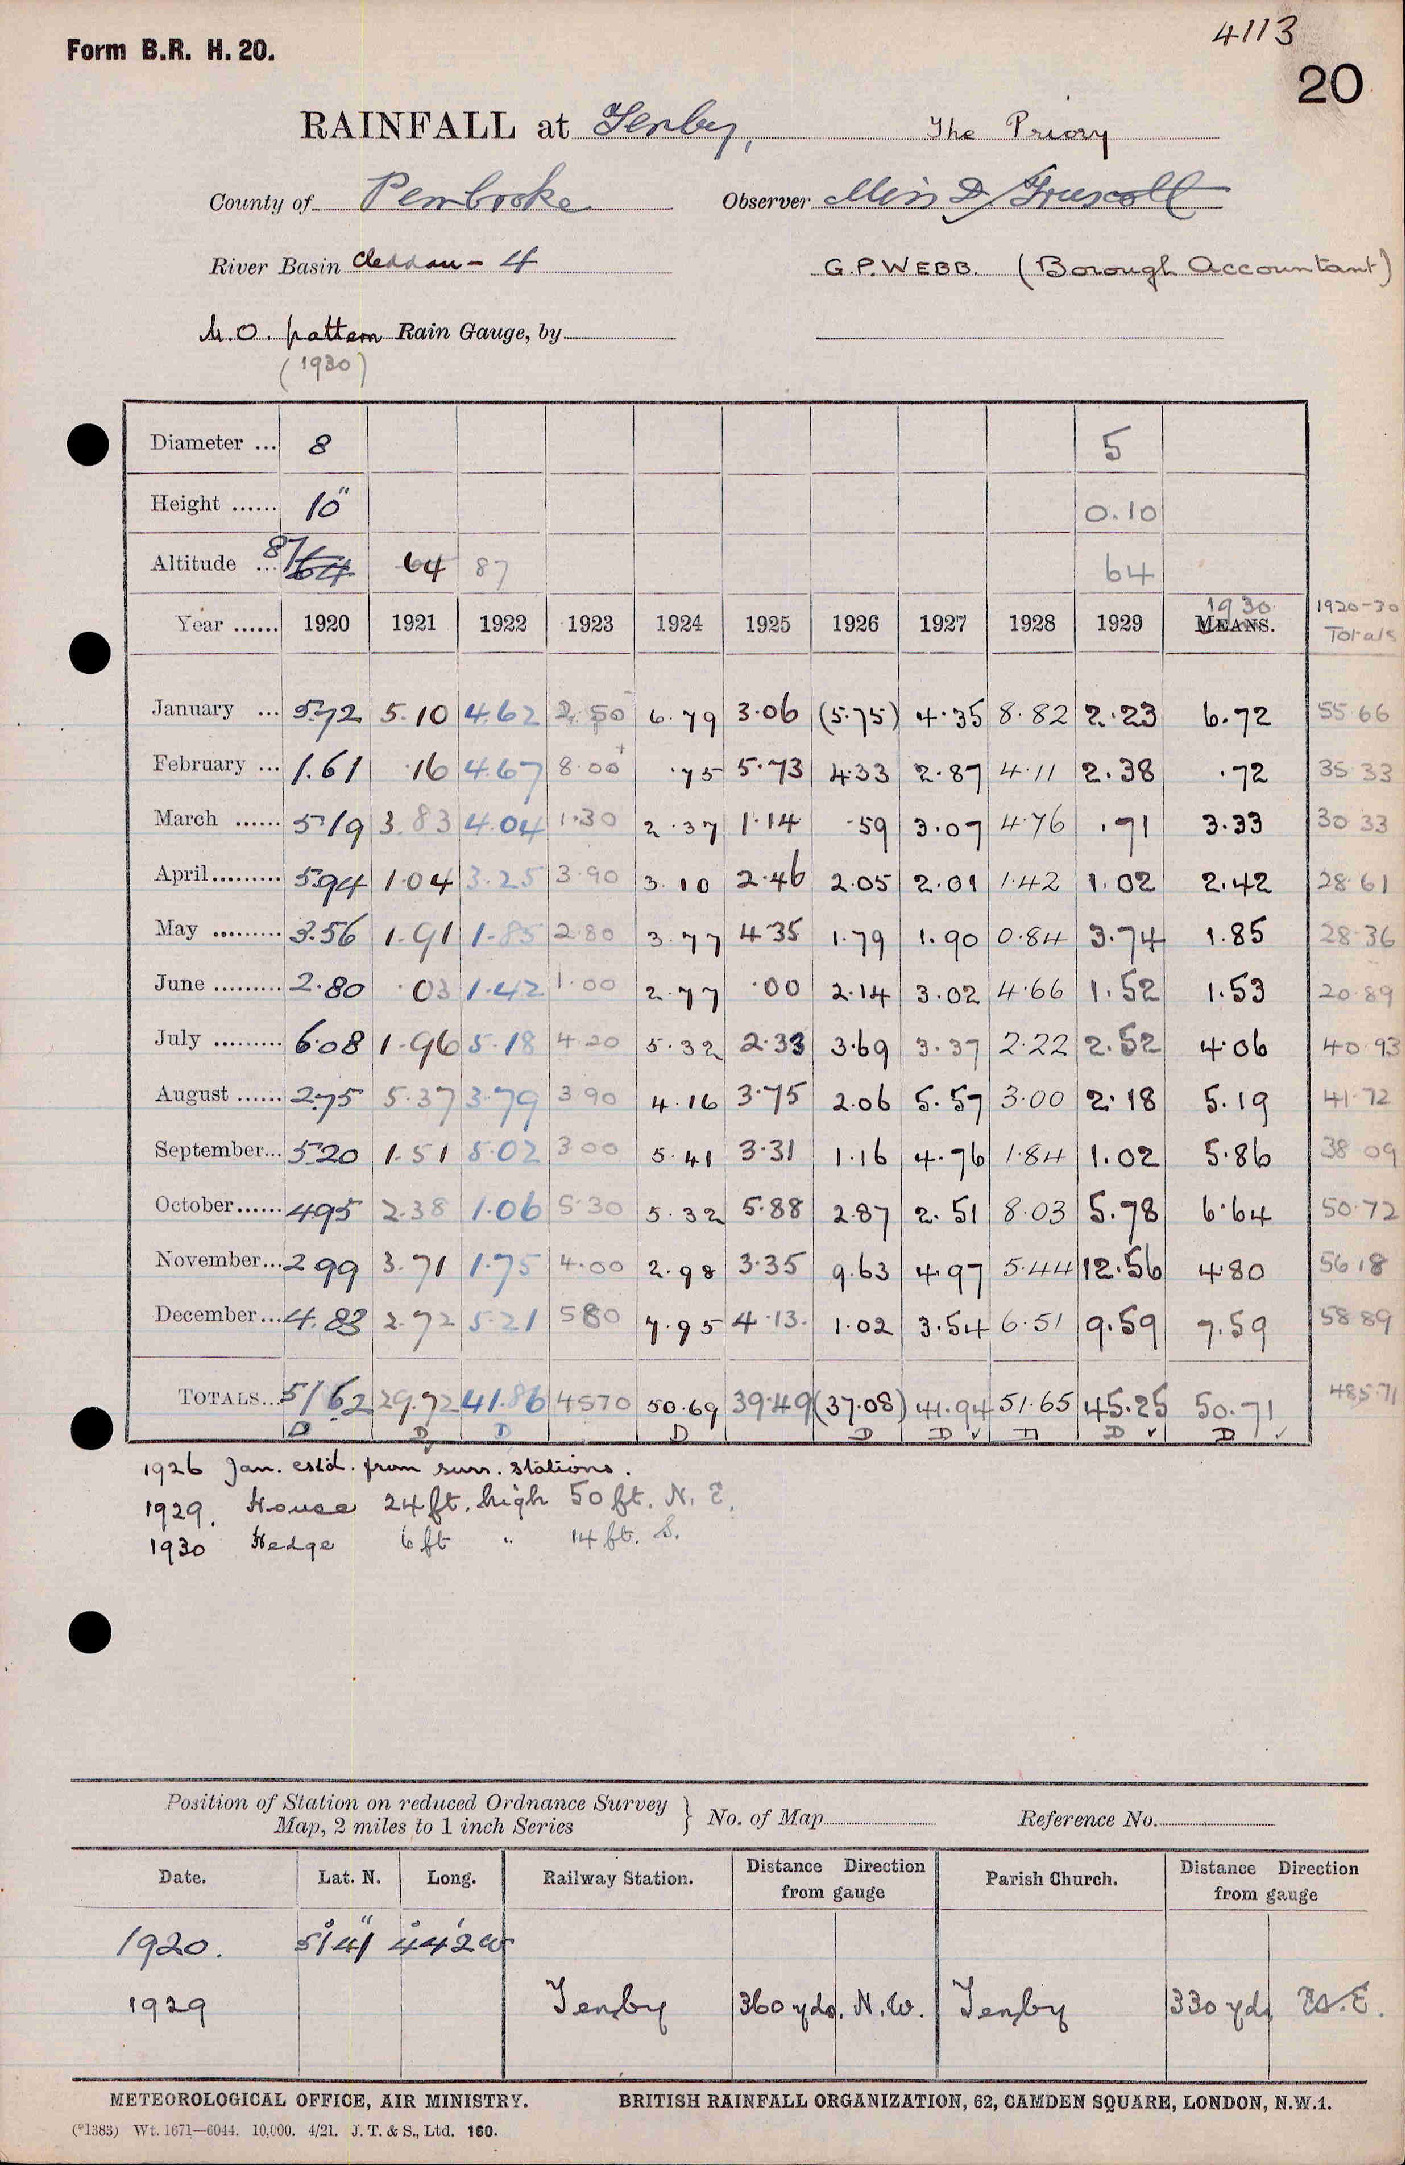 4113
Form B.R. H. 20.
20
RAINFALL at Tenby, The Priory
County of Pembroke Observer Miss D Truscott
River Basin Cleddau - 4 G.P. WEBB. (Borough Accountant)
M.O. pattern Rain Gauge, by
(1930)
Diameter ... 8 5
Height ...... 10" 0.10
Altitude ... 87 64 64 87 64
Year ...... 1920 1921 1922 1923 1924 1925 1926 1927 1928 1929 MEANS. 1930 1920-30 Totals
January ... 5.72 5.10 4.62 2.50 6.79 3.06 (5.75) 4.35 8.82 2.23 6.72 55.66
February ... 1.61 .16 4.67 8.00 .75 5.73 4.33 2.87 4.11 2.38 .72 35.33
March ...... 5.19 3.83 4.04 1.30 2.37 1.14 .59 3.07 4.76 .71 3.33 30.33
April......... 5.94 1.04 3.25 3.90 3.10 2.46 2.05 2.01 1.42 1.02 2.42 28.61
May ......... 3.56 1.91 1.85 2.80 3.77 4.35 1.79 1.90 0.84 3.74 1.85 28.36
June ......... 2.80 .03 1.42 1.00 2.77 .00 2.14 3.02 4.66 1.52 1.53 20.89
July ......... 6.08 1.96 5.18 4.20 5.32 2.33 3.69 3.37 2.22 2.52 4.06 40.93
August ...... 2.75 5.37 3.79 3.90 4.16 3.75 2.06 5.57 3.00 2.18 5.19 41.72
September... 5.20 1.51 5.02 3.00 5.41 3.31 1.16 4.76 1.84 1.02 5.86 38.09
October...... 4.95 2.38 1.06 5.30 5.32 5.88 2.87 2.51 8.03 5.78 6.64 50.72
November... 2.99 3.71 1.75 4.00 2.98 3.35 9.63 4.97 5.44 12.56 4.80 56.18
December... 4.83 2.72 5.21 5.80 7.95 4.13. 1.02 3.54 6.51 9.59 7.59 58.89
TOTALS... 51.62 29.72 41.86 45.70 50.69 39.49 (37.08) 41.94 51.65 45.25 50.71 485.71
D D D D D D D D D
1926 Jan. estd. from surr. stations.
1929. House 24 ft. high 50 ft. N. E.
1930 Hedge 6 ft " 14 ft. S.
Position of Station on reduced Ordnance Survey Map, 2 miles to 1 inch Series } No. of Map Reference No.
Date. Lat. N. Long. Railway Station. Distance Direction from gauge Parish Church. Distance Direction from gauge
1920. 51° 41" 4° 42' W
1929 Tenby 360 yds. N.W. Tenby 330 yds E.
METEOROLOGICAL OFFICE, AIR MINISTRY. BRITISH RAINFALL ORGANIZATION, 62, CAMDEN SQUARE, LONDON, N.W.1.
(*1383) Wt. 1671—6044. 10,000. 4/21. J. T. & S., Ltd. 160.